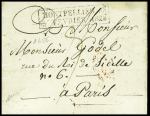 MONTPELLIER
A Monsieur
Monsieur Godel
rue du Roi de Sicille
no 6.
à Paris